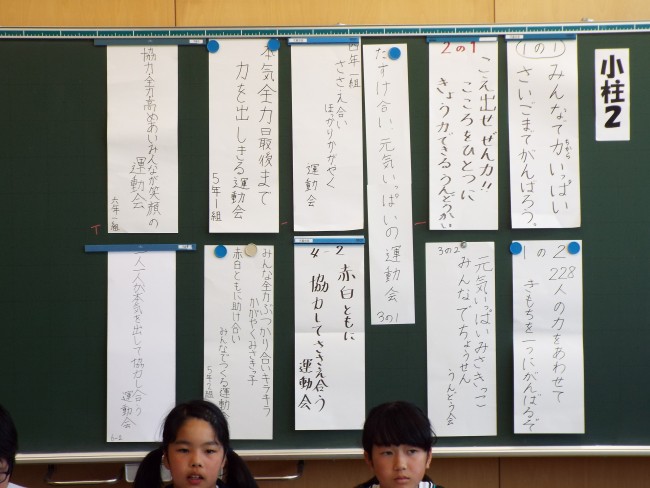 小柱2
1の1
みんなで力いっぱい
ちから
さいごまでがんばろう。
1の2
228人の力をあわせて
きもちを一つにがんばるぞ
2の1
こえ出せ ぜん力!!
こころをひとつに
きょう力できるうんどうかい
3の2
元気いっぱいみさきっこ
みんなでちょうせん
うんどう会
たすけ合い、元気いっぱいの運動会
3の1
四年一組
ささえ合い
ほっかりかがやく
運動会
4-2
赤白ともに
協力してささえ合う
運動会
本気全力最後まで
力を出しきる運動会
5年1組
みんな全力ぶつかり合いキラキラ
かがやくみさきっ子
赤白ともに助け合い
みんなでつくる運動会
5年2組
協力全力高めあいみんなが笑顔の
運動会
六年一組
一人一人が本気を出して協力し合う
運動会
6-2